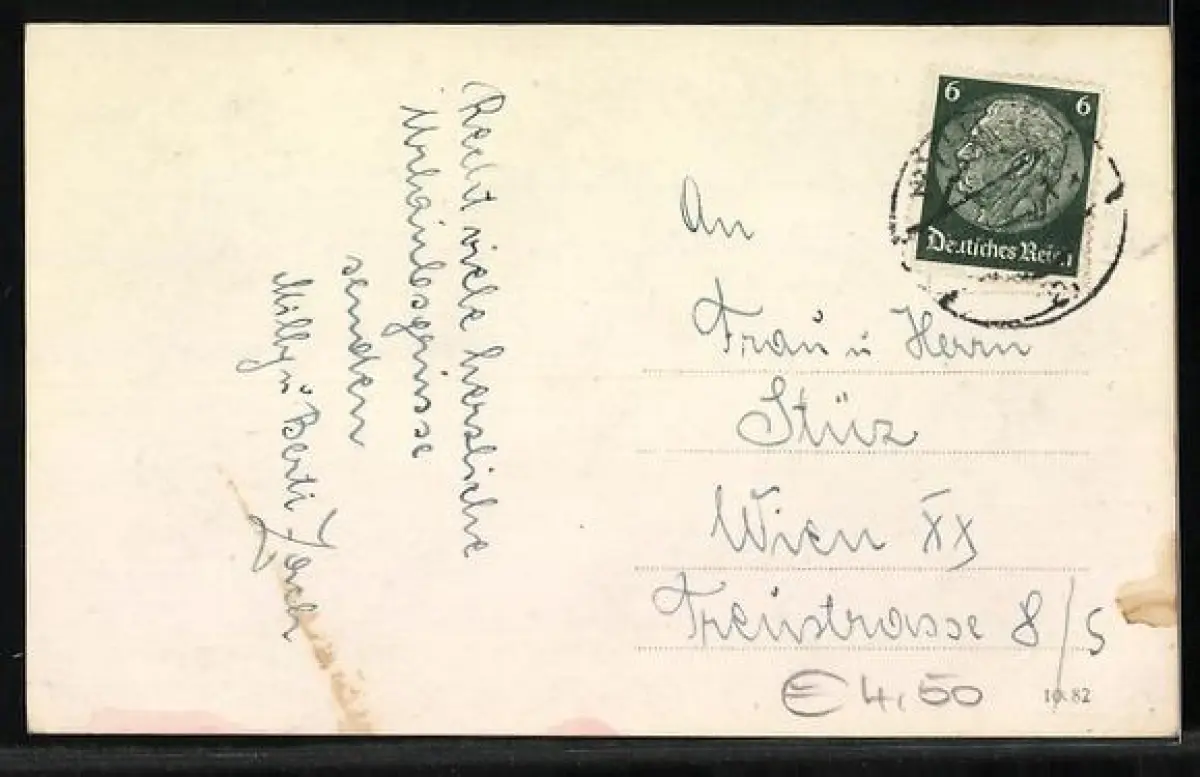 Recht viele herzliche
Urlaubsgrüsse
senden
Milly u Berti
6 6
Deutsches Reich
An
Frau u Herrn
Stüz
Wien XX
strasse 8/5
€ 4,50
10.82